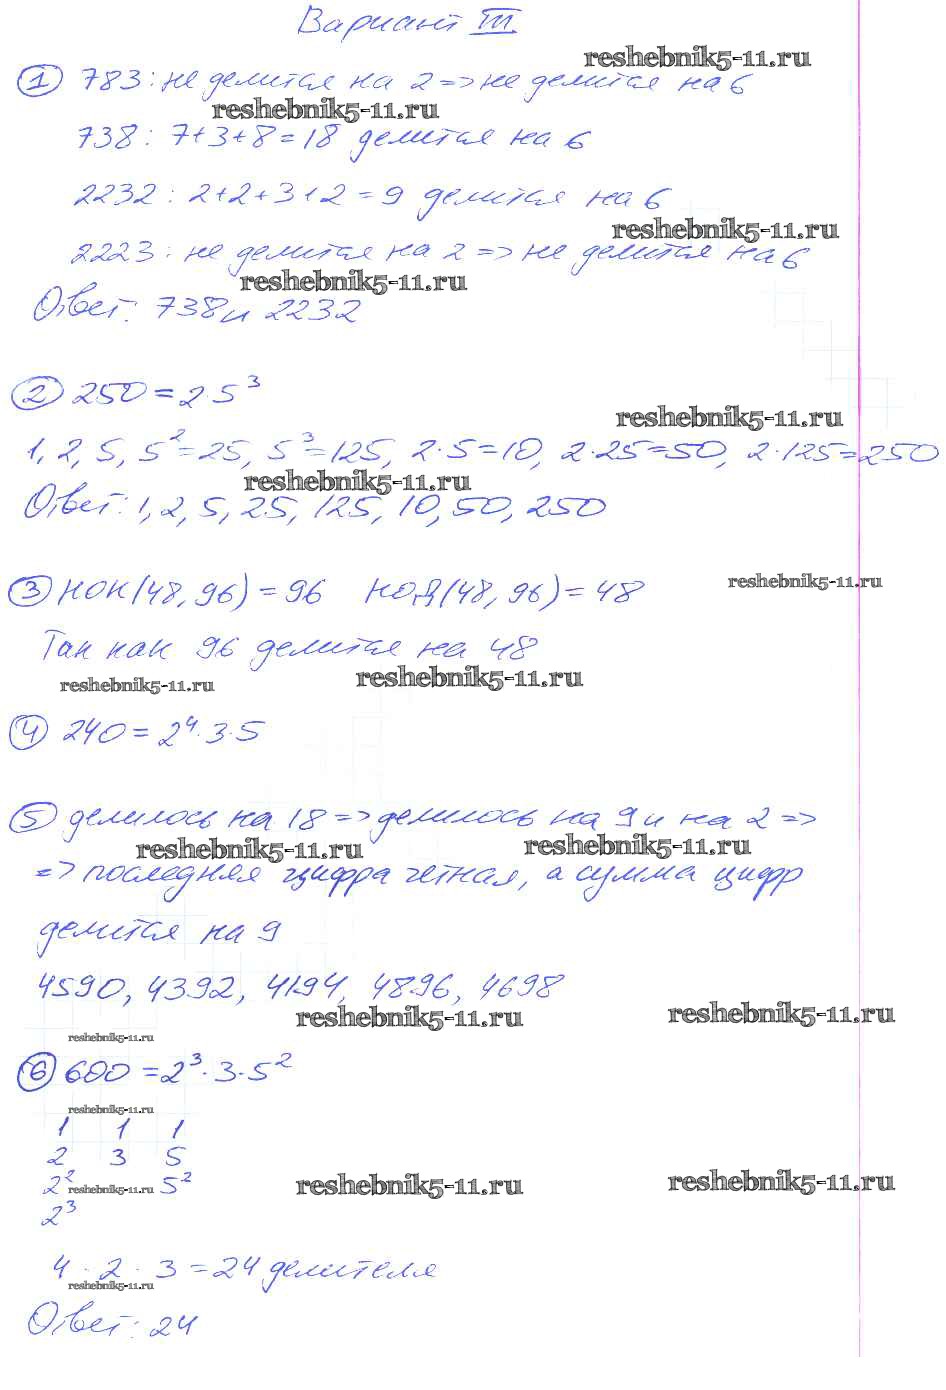 Вариант III
reshebnik5-11.ru
① 783: не делится на 2 => не делится на 6
reshebnik5-11.ru
738: 7+3+8=18 делится на 6
2232: 2+2+3+2=9 делится на 6
reshebnik5-11.ru
2223: не делится на 2 => не делится на 6
reshebnik5-11.ru
Ответ: 738 и 2232
② 250 = 2·5³
reshebnik5-11.ru
1, 2, 5, 5²=25, 5³=125, 2·5=10, 2·25=50, 2·125=250
reshebnik5-11.ru
Ответ: 1, 2, 5, 25, 125, 10, 50, 250
③ НОК(48, 96) = 96 НОД(48, 96) = 48
reshebnik5-11.ru
Так как 96 делится на 48
reshebnik5-11.ru reshebnik5-11.ru
④ 240 = 2⁴·3·5
⑤ делилось на 18 => делилось на 9 и на 2 =>
reshebnik5-11.ru reshebnik5-11.ru
=> последняя цифра чётная, а сумма цифр
делится на 9
4590, 4392, 4194, 4896, 4698
reshebnik5-11.ru reshebnik5-11.ru
reshebnik5-11.ru
⑥ 600 = 2³·3·5²
reshebnik5-11.ru
1 1 1
2 3 5
2² 5²
reshebnik5-11.ru reshebnik5-11.ru reshebnik5-11.ru
2³
4 · 2 · 3 = 24 делителя
reshebnik5-11.ru
Ответ: 24